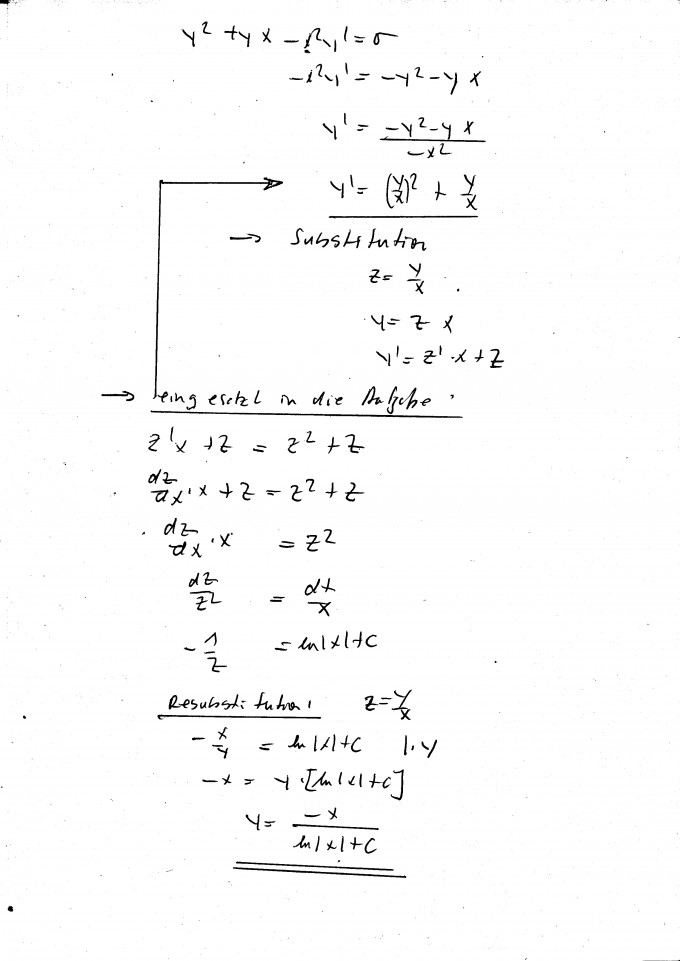 y² + yx - x²y' = 0
-x²y' = -y² - yx
y' = (-y² - yx)/(-x²)
y' = (y/x)² + y/x
→ Substitution
z = y/x
y = z x
y' = z'·x + z
→ eingesetzt in die Aufgabe:
z'x + z = z² + z
dz/dx · x + z = z² + z
dz/dx · x = z²
dz/z² = dx/x
-1/z = ln|x| + C
Resubstitution: z = y/x
-x/y = ln|x| + C |·y
-x = y·[ln|x| + C]
y = -x/(ln|x| + C)